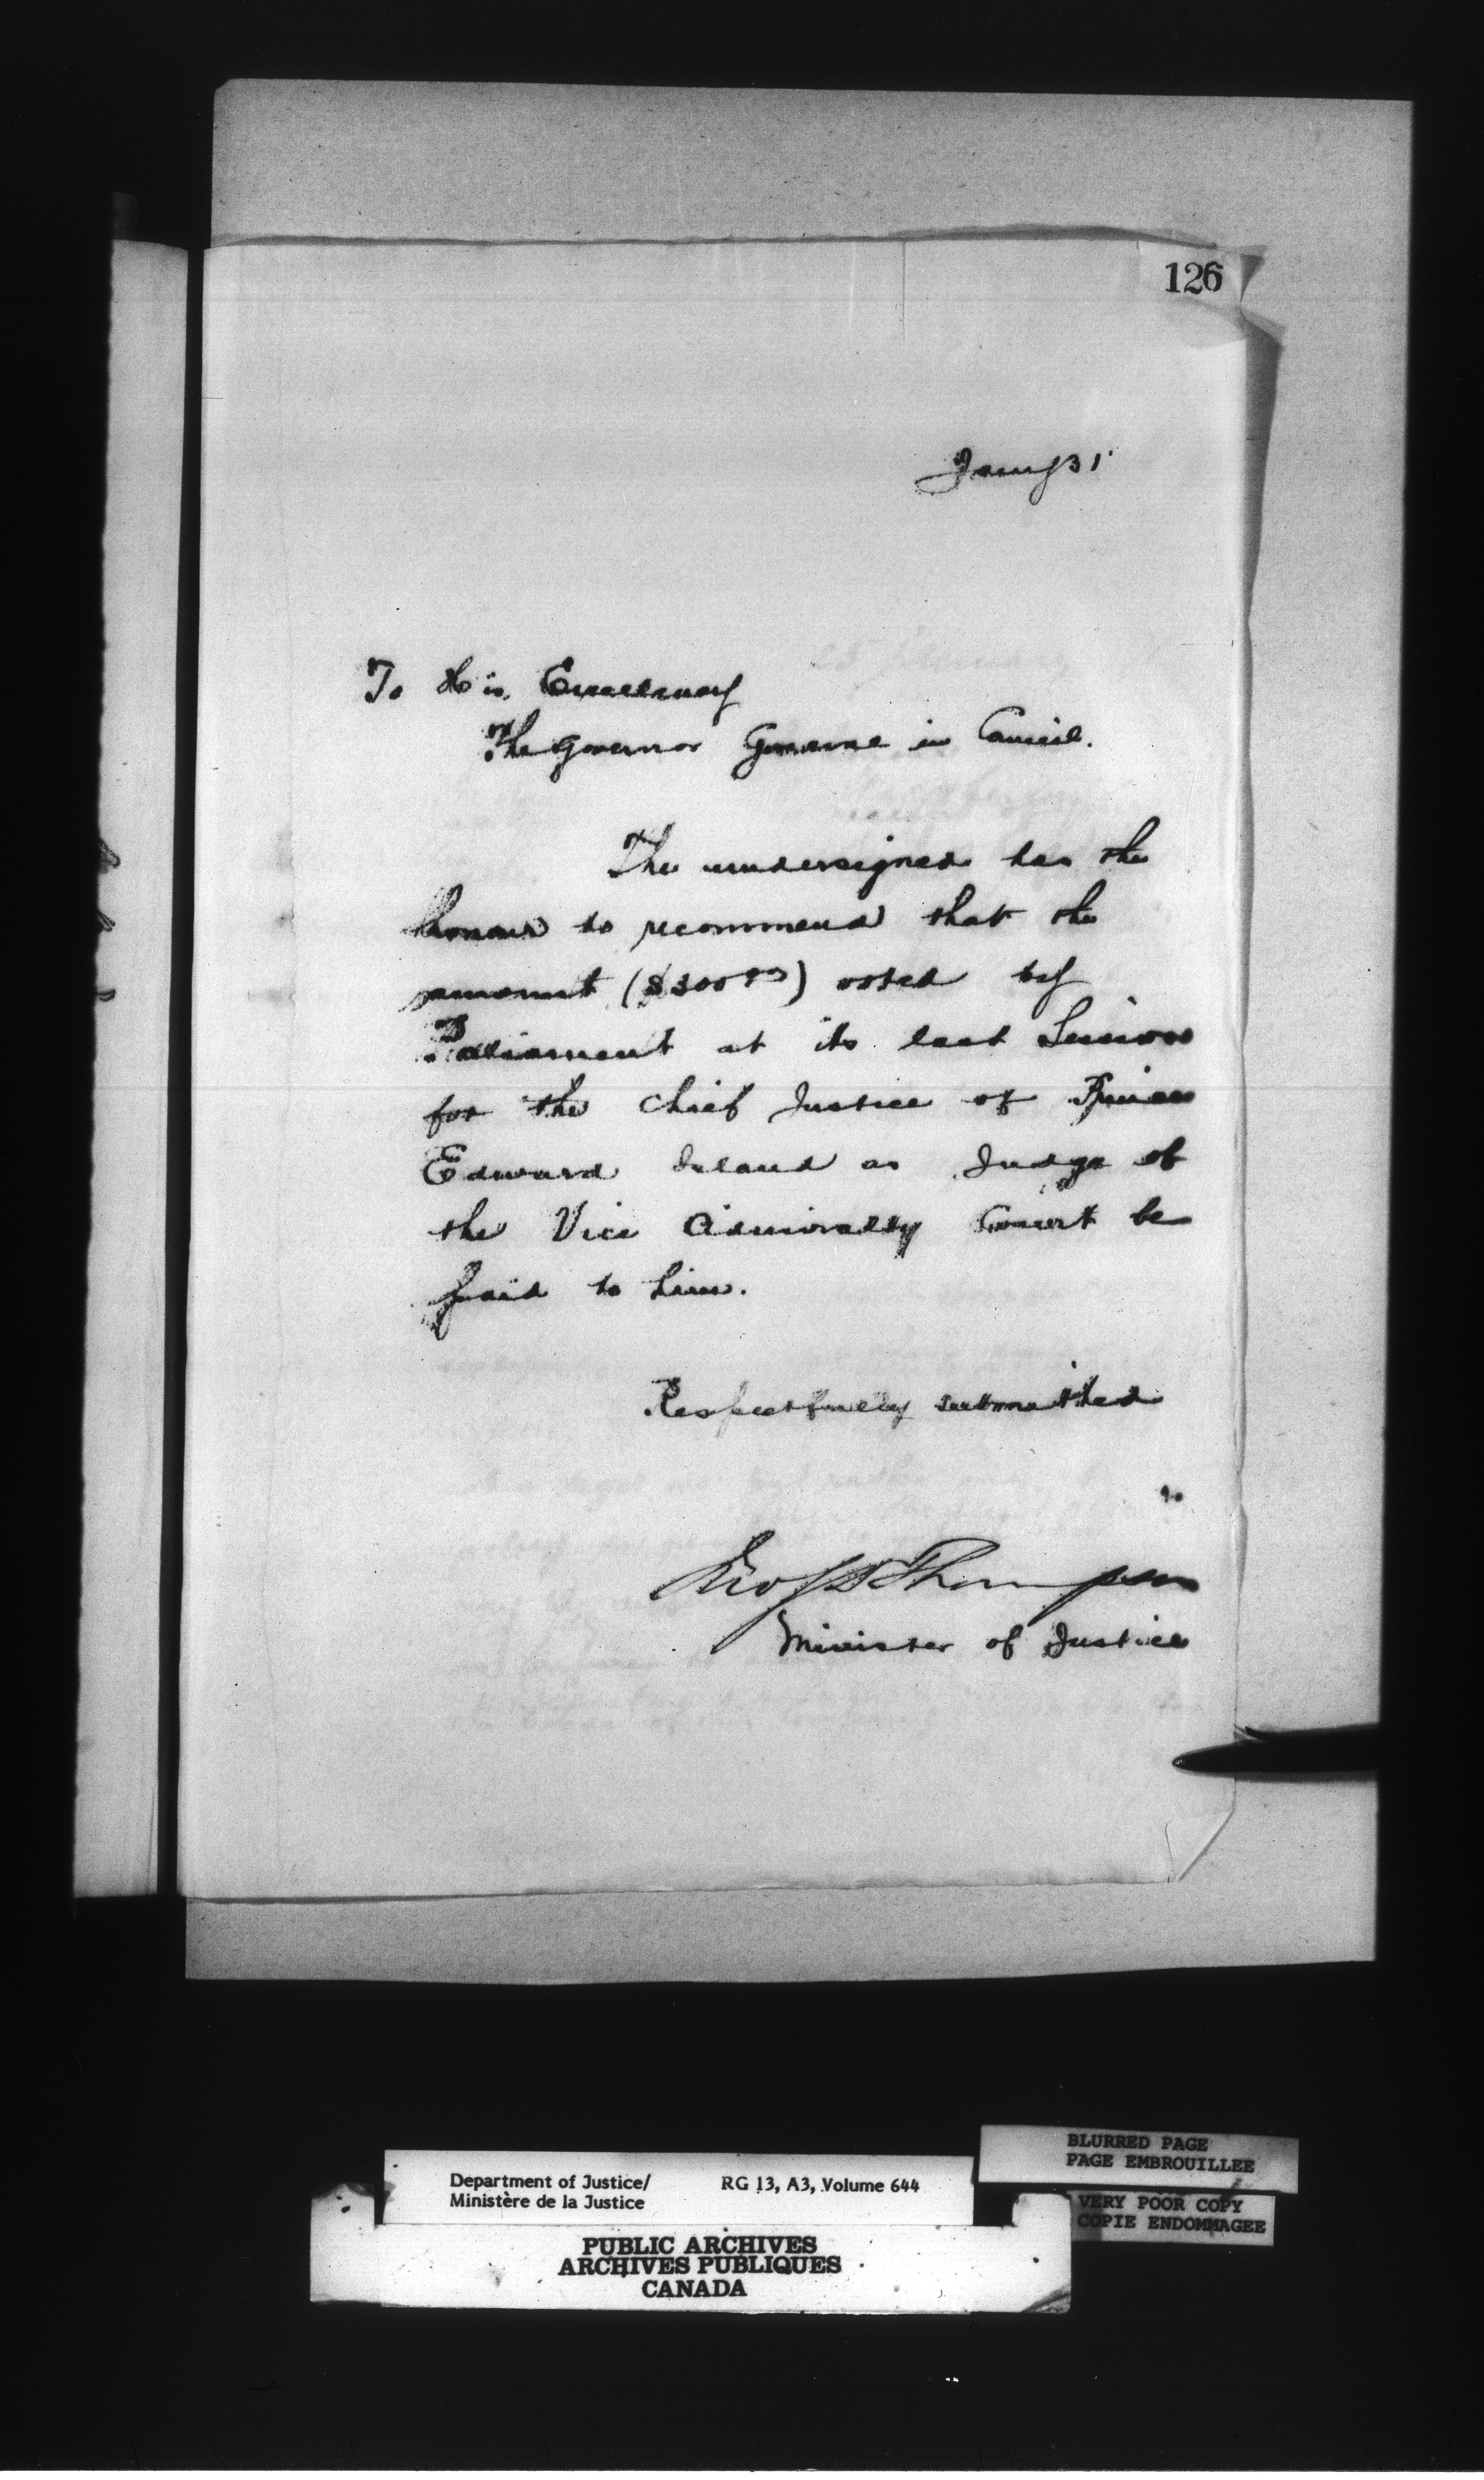 126
Jany 31
To His Excellency
The Governor General in Council.
The undersigned has the
honour to recommend that the
amount ($300.00) voted by
Parliament at its last Session
for the Chief Justice of Prince
Edward Island as Judge of
the Vice Admiralty Court be
paid to him.
Respectfully submitted
Jno S D Thompson
Minister of Justice
BLURRED PAGE
PAGE EMBROUILLEE
Department of Justice/ RG 13, A3, Volume 644
Ministère de la Justice
VERY POOR COPY
COPIE ENDOMMAGEE
PUBLIC ARCHIVES
ARCHIVES PUBLIQUES
CANADA